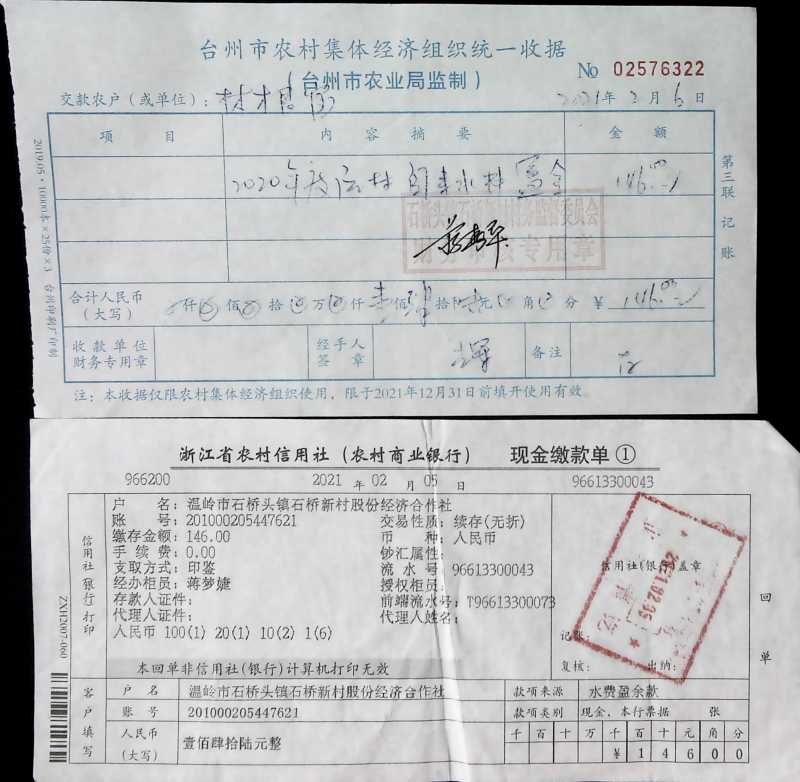 台州市农村集体经济组织统一收据
(台州市农业局监制)
No 02576322
交款农户（或单位）：
2021年2月6日
项 目 内 容 摘 要 金 额
2020年度 自来水 盈余 146.00
石桥头镇石桥新村村务监督委员会
财务审核专用章
合计人民币
(大写)
仟 佰 拾 万 仟 壹佰 肆拾 陆元 角 分 ¥ 146.00
收款单位
财务专用章
经手人
签章
备注
注：本收据仅限农村集体经济组织使用，限于2021年12月31日前填开使用有效。
第三联 记账
2019.05·10000本×25份×3 台州
浙江省农村信用社（农村商业银行） 现金缴款单①
966200 2021 年 02 月 05 日 96613300043
信用社(银行)打印
户 名：温岭市石桥头镇石桥新村股份经济合作社
账 号：201000205447621 交易性质：续存(无折)
缴存金额：146.00 币 种：人民币
手 续 费：0.00 钞汇属性：
支取方式：印鉴 流 水 号 96613300043
经办柜员：蒋梦婕 授权柜员：
存款人证件： 前端流水号：T96613300073
代理人证件： 代理人姓名：
人民币 100(1) 20(1) 10(2) 1(6)
信用社(银行)盖章
2021.02.05
记账：
本回单非信用社(银行)计算机打印无效
复核： 出纳：
回单
ZXH2007-060
客户填写
户 名 温岭市石桥头镇石桥新村股份经济合作社 款项来源 水费盈余款
账 号 201000205447621 款项类别 现金、本行票据 张
人民币
(大写) 壹佰肆拾陆元整
千 百 十 万 千 百 十 元 角 分
¥ 1 4 6 0 0